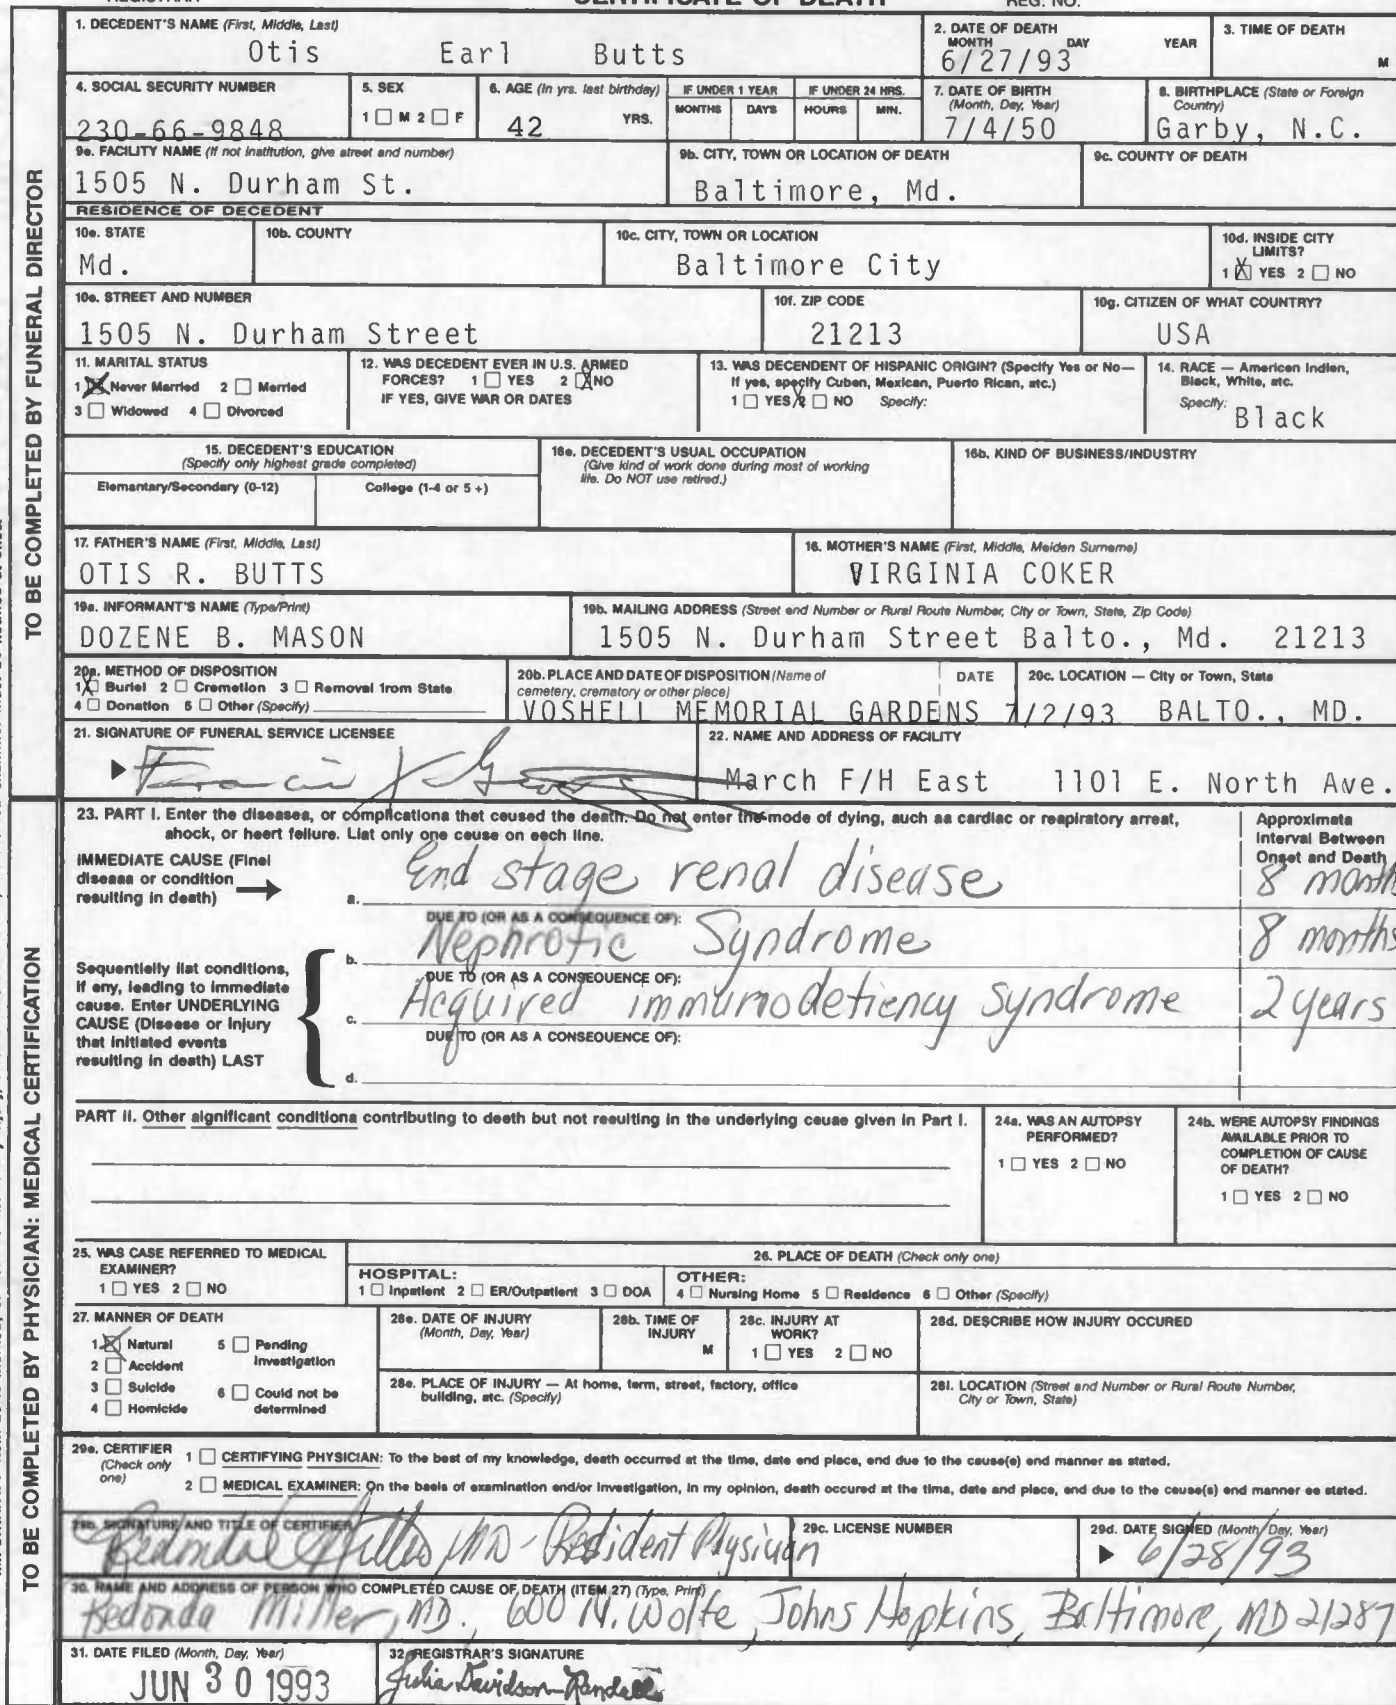 CERTIFICATE OF DEATH
REG. NO.
1. DECEDENT'S NAME (First, Middle, Last)
Otis Earl Butts
2. DATE OF DEATH
MONTH DAY YEAR
6/27/93
3. TIME OF DEATH
M
4. SOCIAL SECURITY NUMBER
230-66-9848
5. SEX
1 M 2 F
6. AGE (In yrs. last birthday)
42 YRS.
IF UNDER 1 YEAR
MONTHS DAYS
IF UNDER 24 HRS.
HOURS MIN.
7. DATE OF BIRTH
(Month, Day, Year)
7/4/50
8. BIRTHPLACE (State or Foreign
Country)
Garby, N.C.
9a. FACILITY NAME (If not institution, give street and number)
1505 N. Durham St.
9b. CITY, TOWN OR LOCATION OF DEATH
Baltimore, Md.
9c. COUNTY OF DEATH
RESIDENCE OF DECEDENT
10a. STATE
Md.
10b. COUNTY
10c. CITY, TOWN OR LOCATION
Baltimore City
10d. INSIDE CITY
LIMITS?
1 X YES 2 NO
10e. STREET AND NUMBER
1505 N. Durham Street
10f. ZIP CODE
21213
10g. CITIZEN OF WHAT COUNTRY?
USA
11. MARITAL STATUS
1 X Never Married 2 Married
3 Widowed 4 Divorced
12. WAS DECEDENT EVER IN U.S. ARMED
FORCES? 1 YES 2 X NO
IF YES, GIVE WAR OR DATES
13. WAS DECENDENT OF HISPANIC ORIGIN? (Specify Yes or No—
If yes, specify Cuban, Mexican, Puerto Rican, etc.)
1 YES X 2 NO Specify:
14. RACE — American Indien,
Black, White, etc.
Specify: Black
15. DECEDENT'S EDUCATION
(Specify only highest grade completed)
Elementary/Secondary (0-12) College (1-4 or 5 +)
16a. DECEDENT'S USUAL OCCUPATION
(Give kind of work done during most of working
life. Do NOT use retired.)
16b. KIND OF BUSINESS/INDUSTRY
17. FATHER'S NAME (First, Middle, Last)
OTIS R. BUTTS
16. MOTHER'S NAME (First, Middle, Maiden Surname)
VIRGINIA COKER
19a. INFORMANT'S NAME (Type/Print)
DOZENE B. MASON
19b. MAILING ADDRESS (Street end Number or Rural Route Number, City or Town, State, Zip Code)
1505 N. Durham Street Balto., Md. 21213
20a. METHOD OF DISPOSITION
1 X Buriel 2 Cremetion 3 Removal from State
4 Donation 5 Other (Specify)
20b. PLACE AND DATE OF DISPOSITION (Name of
cemetery, crematory or other place)
DATE
VOSHELL MEMORIAL GARDENS 7/2/93
20c. LOCATION — City or Town, State
BALTO., MD.
21. SIGNATURE OF FUNERAL SERVICE LICENSEE
22. NAME AND ADDRESS OF FACILITY
March F/H East 1101 E. North Ave.
TO BE COMPLETED BY FUNERAL DIRECTOR
23. PART I. Enter the diseases, or complications thet ceused the death. Do not enter the mode of dying, auch aa cardiac or reapiratory arreat,
ahock, or heert fellure. Liat only one cause on each line.
Approximata
Interval Between
Onset and Death
IMMEDIATE CAUSE (Finel
diseaaa or condition
resulting in death)
a. End stage renal disease 8 months
DUE TO (OR AS A CONSEQUENCE OF):
b. Nephrotic Syndrome 8 months
DUE TO (OR AS A CONSEQUENCE OF):
c. Acquired immunodeficiency syndrome 2 years
DUE TO (OR AS A CONSEQUENCE OF):
d.
Sequentielly liat conditions,
if eny, leading to immediate
cause. Enter UNDERLYING
CAUSE (Diseese or injury
that initiated events
resulting in death) LAST
PART II. Other aignificant conditiona contributing to deeth but not reeulting in the underlying ceuae given in Part I.
24a. WAS AN AUTOPSY
PERFORMED?
1 YES 2 NO
24b. WERE AUTOPSY FINDINGS
AVAILABLE PRIOR TO
COMPLETION OF CAUSE
OF DEATH?
1 YES 2 NO
25. WAS CASE REFERRED TO MEDICAL
EXAMINER?
1 YES 2 NO
26. PLACE OF DEATH (Check only one)
HOSPITAL:
1 Inpatient 2 ER/Outpatient 3 DOA
OTHER:
4 Nursing Home 5 Residence 6 Other (Specify)
27. MANNER OF DEATH
1 X Natural 5 Pending
Investigation
2 Accident
3 Suicide 6 Could not be
determined
4 Homicide
28a. DATE OF INJURY
(Month, Day, Year)
28b. TIME OF
INJURY
M
28c. INJURY AT
WORK?
1 YES 2 NO
28d. DESCRIBE HOW INJURY OCCURED
28e. PLACE OF INJURY — At home, term, street, factory, office
building, atc. (Specify)
28f. LOCATION (Street and Number or Rural Route Number,
City or Town, State)
29a. CERTIFIER
(Check only
one)
1 CERTIFYING PHYSICIAN: To the best of my knowledge, death occurred at the time, date end place, end due to the cause(e) end manner as stated.
2 MEDICAL EXAMINER: On the baeis of examination end/or investigation, in my opinion, death occured at the tima, date and place, end due to the ceuse(s) end manner ee stated.
29b. SIGNATURE AND TITLE OF CERTIFIER
Redonda Miller, MD - Resident Physician
29c. LICENSE NUMBER
29d. DATE SIGNED (Month, Day, Year)
6/28/93
30. NAME AND ADDRESS OF PERSON WHO COMPLETED CAUSE OF DEATH (ITEM 27) (Type, Print)
Redonda Miller, MD., 600 N. Wolfe, Johns Hopkins, Baltimore, MD 21287
31. DATE FILED (Month, Day, Year)
JUN 30 1993
32. REGISTRAR'S SIGNATURE
Julia Davidson-Randall
TO BE COMPLETED BY PHYSICIAN: MEDICAL CERTIFICATION